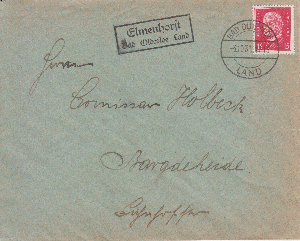 Elmenhorst
Bad Oldesloe Land
BAD OLDESLOE
LAND
15
Herrn
Comissar Holbeck
Bargteheide